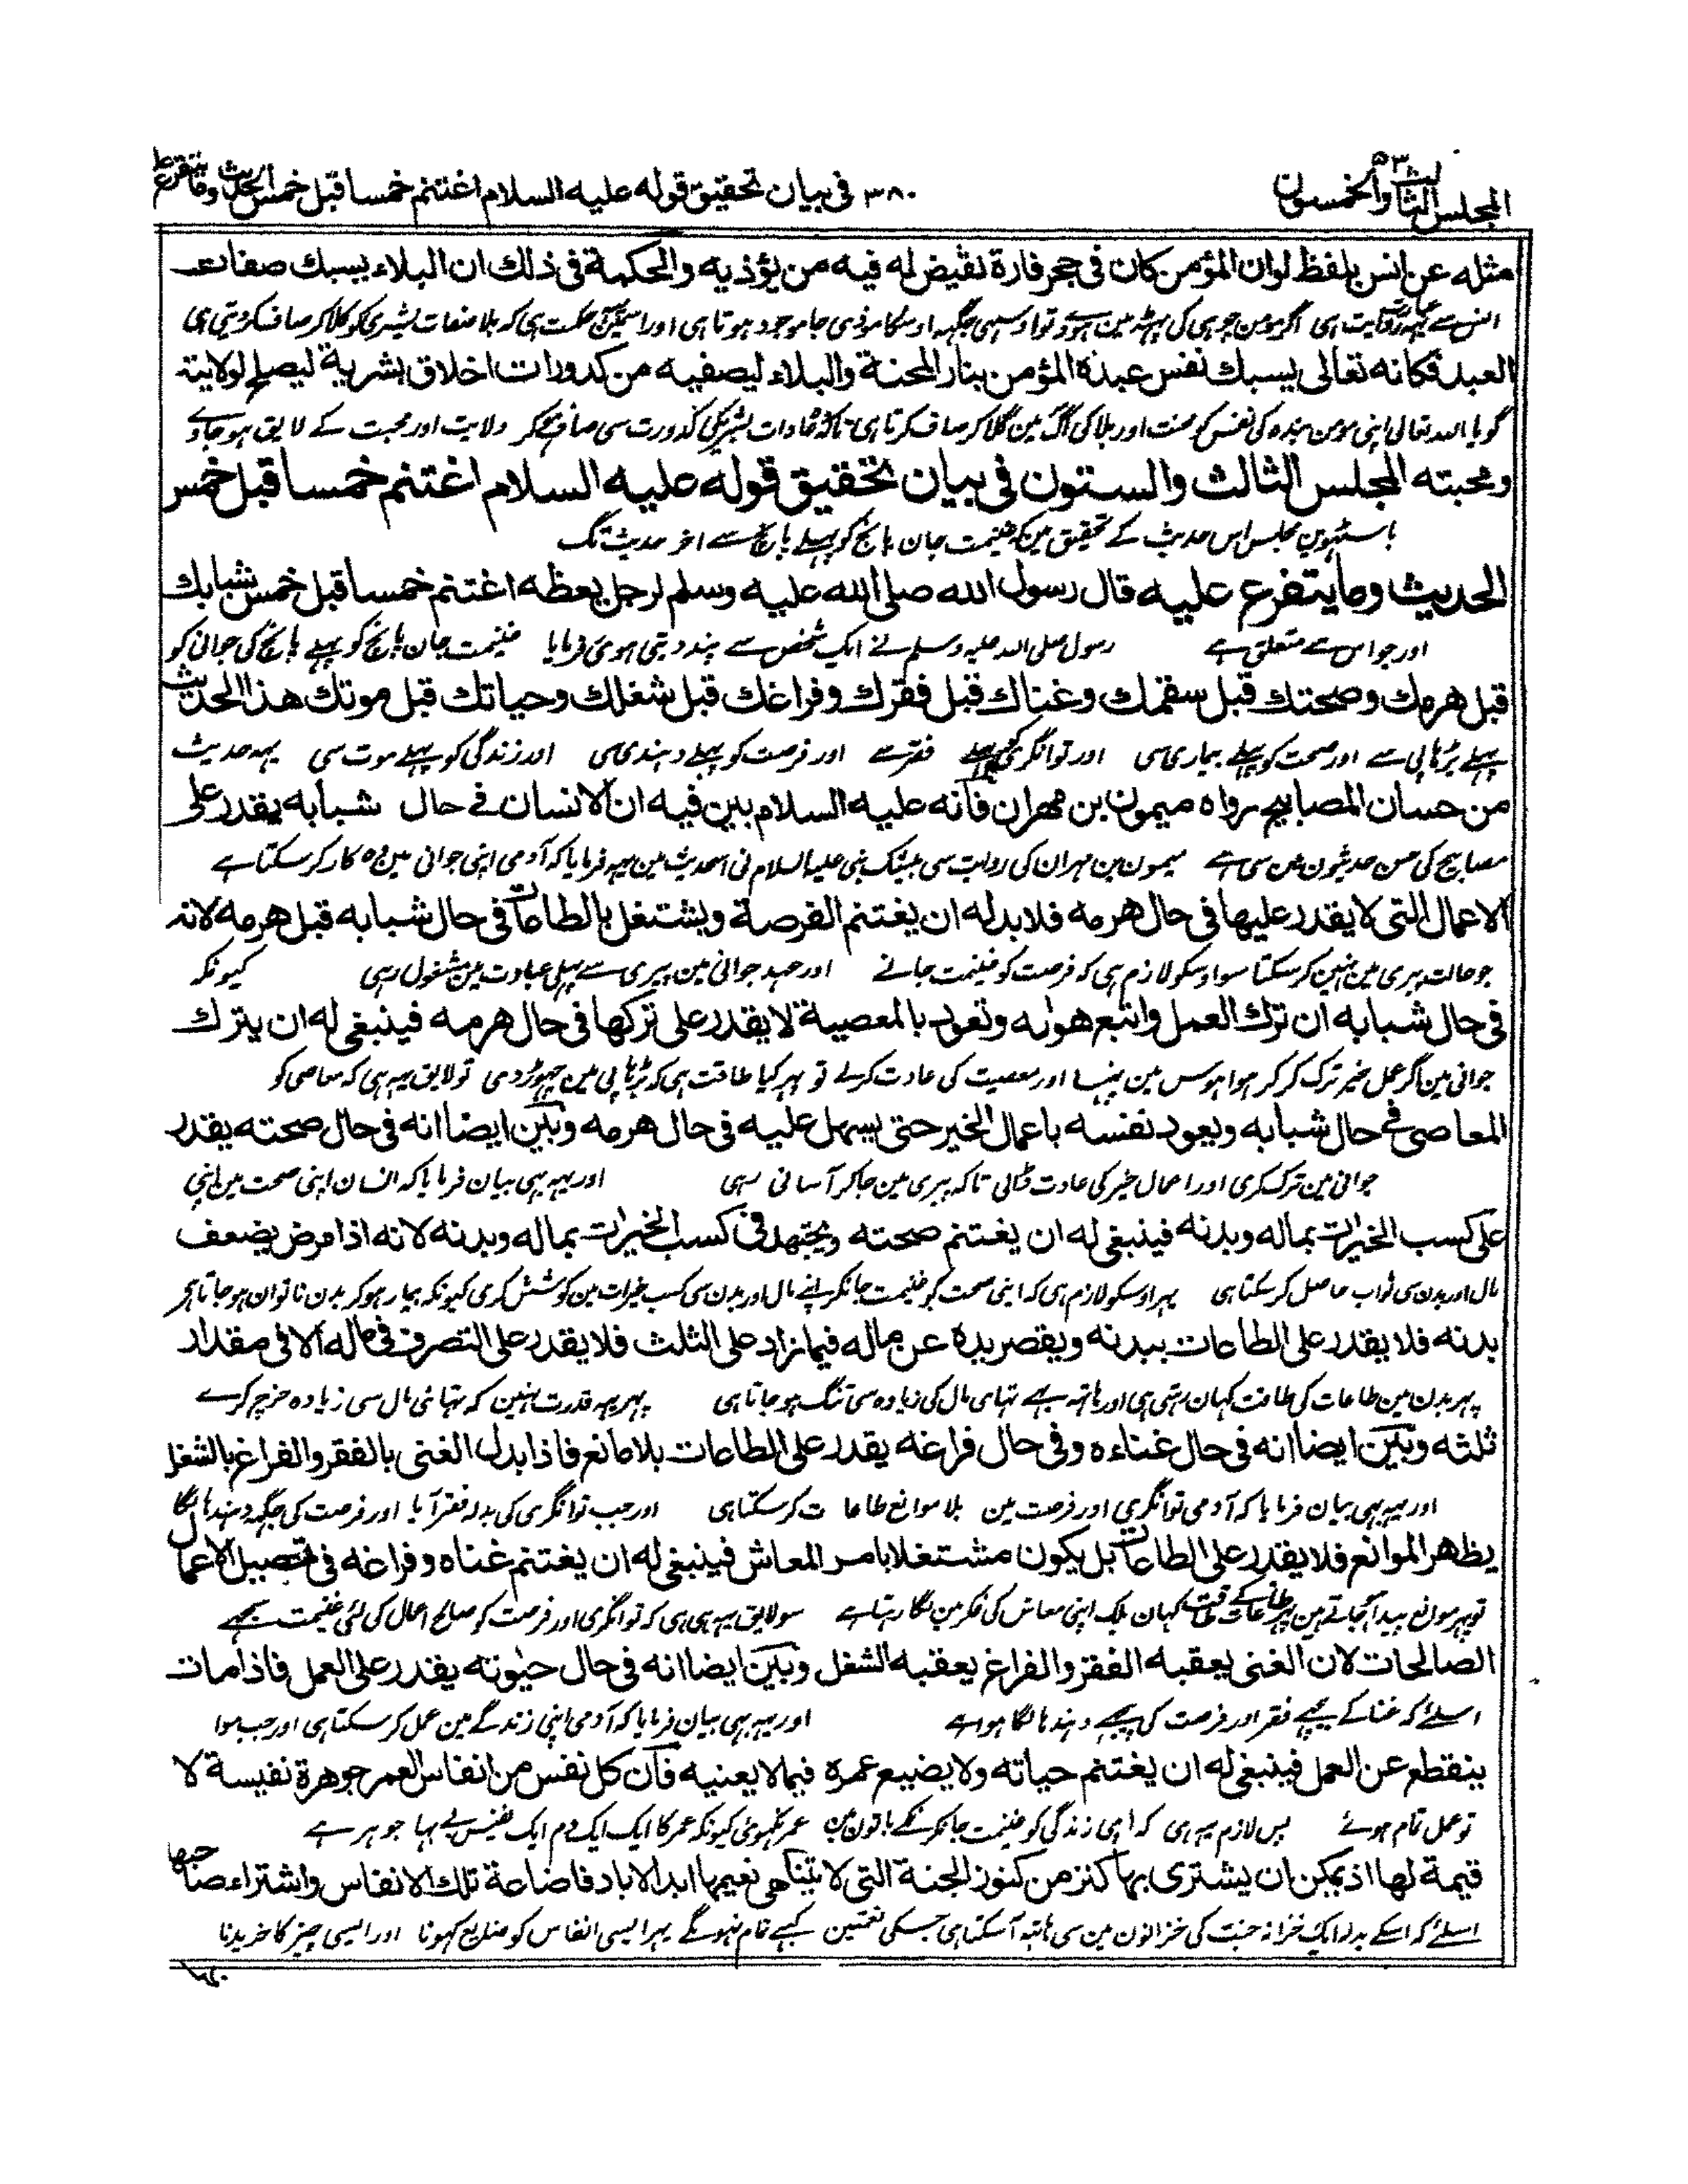 المجلس الثالث والخمسون ٥٣
٣٨٠ فى بيان تحقيق قوله عليه السلام اغتنم خمسا قبل خمس الحديث وما يتفرع
مثله عن انس بلفظ لوان المؤمن كان فى جحر فارة نقيض له فيه من يؤذيه والحكمة فى ذلك ان البلاء يسبك صفات
انس سے یہہ روایت ہی اگر مومن چوہی کی بہٹہ مین ہووے تو اوسی جگہہ اوسکا موذی جا موجود ہوتا ہی اور اسمین حکمت ہی کہ بلا صفات بشری کو گلاکر صاف کردیتی ہی
العبد فكانه تعالى يسبك نفس عبده المؤمن بنار المحنة والبلاء ليصفيه من كدورات اخلاق بشرية ليصلح لولايته
گویا اللہ تعالی اپنی مومن بندہ کی نفس کو محنت اور بلا کی آگ مین گلا کر صاف کرتا ہی تاکہ عادات بشریکی کدورت سی صاف ہوکر ولایت اور محبت کے لایق ہو جاوے
ومحبته المجلس الثالث والستون فى بيان تحقيق قوله عليه السلام اغتنم خمسا قبل خمس
باسٹہوین مجلس اس حدیث کے تحقیق مین کہ غنیمت جان پانچ کو پہلے پانچ سے اخر حدیث تک
الحديث وما يتفرع عليه قال رسول الله صلى الله عليه وسلم لرجل يعظه اغتنم خمسا قبل خمس شبابك
اور جو اس سے متعلق ہے رسول صلی اللہ علیہ وسلم نے ایک شخص سے پند دیتی ہوئ فرمایا غنیمت جان پانچ کو پہلے پانچ کی جوانی کو
قبل هرمك وصحتك قبل سقمك وغناك قبل فقرك وفراغك قبل شغلك وحياتك قبل موتك هذا الحديث
پہلے بڑہاپی سے اور صحت کو پہلے بیماری سی اور توانگری کو پہلے فقر سے اور فرصت کو پہلے دہندی سی اور زندگی کو پہلے موت سی یہہ حدیث
من حسان المصابيح رواه ميمون بن مهران فانه عليه السلام بين فيه ان الانسان فے حال شبابه يقدر على
مصابیح کی حسن حدیثون مین سی ہے میمون بن مہران کی روایت سی بیشک نبی علیہ السلام نی اسحدیث مین یہہ فرمایا کہ آدمی اپنی جوانی مین وہ کار کرسکتا ہے
الاعمال التى لا يقدر عليها فى حال هرمه فلا بد له ان يغتنم الفرصة ويشتغل بالطاعات فى حال شبابه قبل هرمه لانه
جو حالت پیری مین نہین کرسکتا سو اوسکو لازم ہی کہ فرصت کو غنیمت جانے اور عہد جوانی مین پیری سے پہلی عبادت مین مشغول رہی کیونکہ
فى حال شبابه ان ترك العمل واتبع هواه وتعود بالمعصية لا يقدر على تركها فى حال هرمه فينبغى له ان يترك
جوانی مین اگر عمل خیر ترک کرکر ہوا ہوس مین پہنسا اور معصیت کی عادت کرلے تو پہر کیا طاقت ہی کہ بڑہاپی مین چہوڑدی تو لایق یہہ ہی کہ معاصی کو
المعاصى فے حال شبابه ويعود نفسه باعمال الخير حتى يسهل عليه فى حال هرمه وبين ايضا انه فى حال صحته يقدر
جوانی مین ترک کری اور اعمال خیر کی عادت ڈالی تاکہ پیری مین جاکر آسانی رہی اور یہہ بہی بیان فرمایا کہ انسان اپنی صحت مین اپنی
على كسب الخيرات بماله وبدنه فينبغى له ان يغتنم صحته ويجتهد فى كسب الخيرات بماله وبدنه لانه اذا مرض يضعف
مال اور بدن سی ثواب حاصل کرسکتا ہی پہر اوسکو لازم ہی کہ اپنی صحت کو غنیمت جانکر اپنے مال اور بدن سی کسب خیرات مین کوشش کری کیونکہ بیمار ہوکر بدن ناتوان ہوجاتا ہے
بدنه فلا يقدر على الطاعات ببدنه ويقصر يده عن ماله فيما زاد على الثلث فلا يقدر على التصرف فى ماله الا فى مقدار
پہر بدن مین طاعات کی طاقت کہان رہتی ہی اور ہاتہہ بہی تہائی مال کی زیادہ سی تنگ ہو جاتا ہی پہر یہہ قدرت نہین کہ تہائی مال سی زیادہ خرچ کرے
ثلثه وبين ايضا انه فى حال غناءه وفى حال فراغه يقدر على الطاعات بلا مانع فاذا بدل الغنى بالفقر والفراغ بالشغل
اور یہہ بہی بیان فرمایا کہ آدمی توانگری اور فرصت مین بلا موانع طاعات کرسکتا ہی اور جب توانگری کی بدلہ فقر آیا اور فرصت کی جگہہ دہندہا لگا
يظهر الموانع فلا يقدر على الطاعات بل يكون مشتغلا بامر المعاش فينبغى له ان يغتنم غناه وفراغه فى تحصيل الاعمال
تو پہر موانع پیدا ہوجاتے ہین پہر طاعات کے طاقت کہان بلکہ اپنی معاش کی فکر مین لگا رہتا ہے سو لایق یہہ ہی ہی کہ توانگری اور فرصت کو صالح اعمال کی لئی غنیمت سمجھے
الصالحات لان الغنى يعقبه الفقر والفراغ يعقبه الشغل وبين ايضا انه فى حال حيوته يقدر على العمل فاذا مات
اسلئے کہ غنا کے پیچہے فقر اور فرصت کی پیچہے دہندہا لگا ہوا ہے اور یہہ بہی بیان فرمایا کہ آدمی اپنی زندگے مین عمل کرسکتا ہی اور جب موا
ينقطع عن العمل فينبغى له ان يغتنم حياته ولا يضيع عمره فيما لا يعنيه فان كل نفس من انفاس العمر جوهرة نفيسة لا
تو عمل تمام ہوئے پس لازم یہہ ہی کہ اپنی زندگی کو غنیمت جانکر نکمے باتون مین عمر نکہوئی کیونکہ عمر کا ایک ایک دم ایک نفیس بے بہا جوہر ہے
قيمة لها اذ يمكن ان يشترى بها كنز من كنوز الجنة التى لا يتناهى نعيمها ابد الاباد فاضاعة تلك الانفاس واشتراء صاحبها
اسلئے کہ اسکے بدلہ ایک خزانہ جنت کی خزانون مین سی ہاتہہ آسکتا ہی جسکی نعمتین کبہے تمام نہونگے پہر ایسی انفاس کو ضایع کہونا اور ایسی چیز کا خریدنا